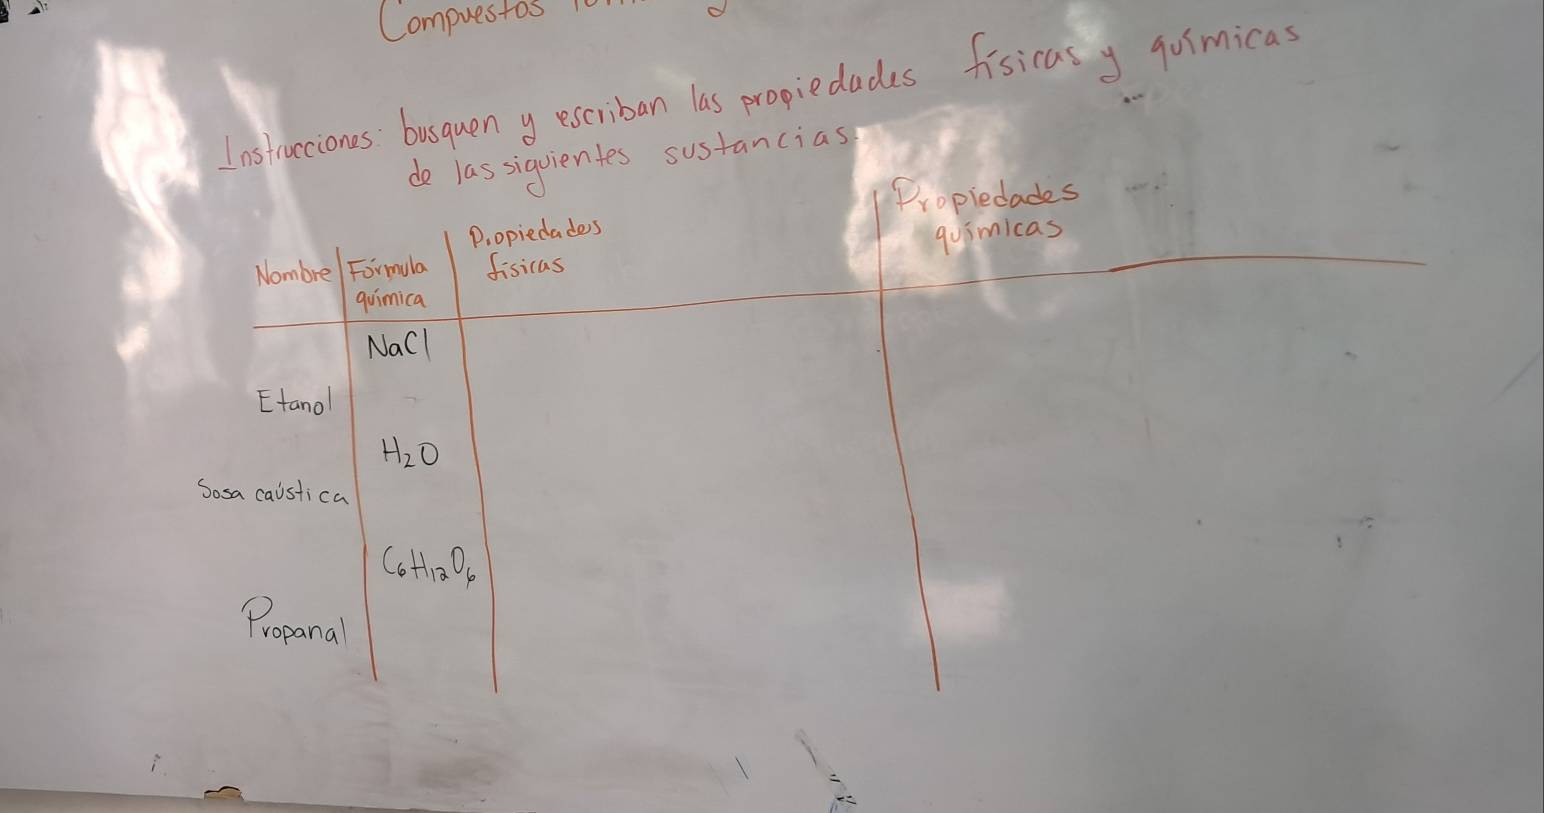 Compuestos
Instrucciones: busquen y escriban las propiedades físicas y químicas
de las siguientes sustancias.
Nombre Fórmula química Propiedades físicas Propiedades químicas
NaCl
Etanol
H₂O
Sosa caústica
C₆H₁₂O₆
Propanal